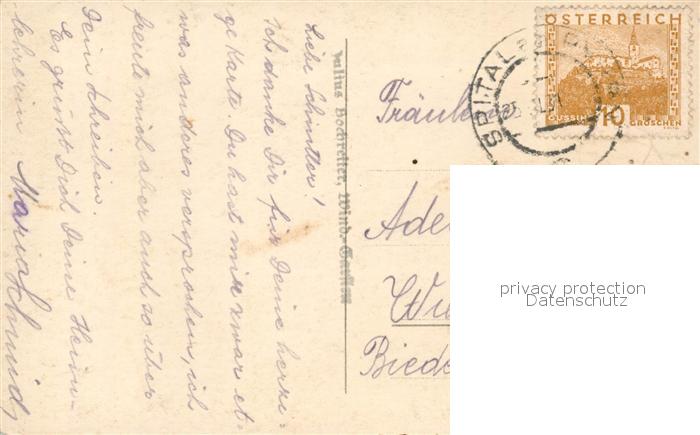 Liebe Schnitter!
Ich danke Dir für Deine herzi-
ge Karte. Du hast mir zwar et-
was anderes versprochen, ich
freute mich aber auch so über
Dein Schreiben.
Es grüsst Dich Deine Heim-
lehrerin Maria Schmid,
Julius Hochreiter, Wind.-Garsten
Fräulein
Ade
Wi
Biede
ÖSTERREICH
10
GÜSSING
GROSCHEN
SPITAL
privacy protection
Datenschutz